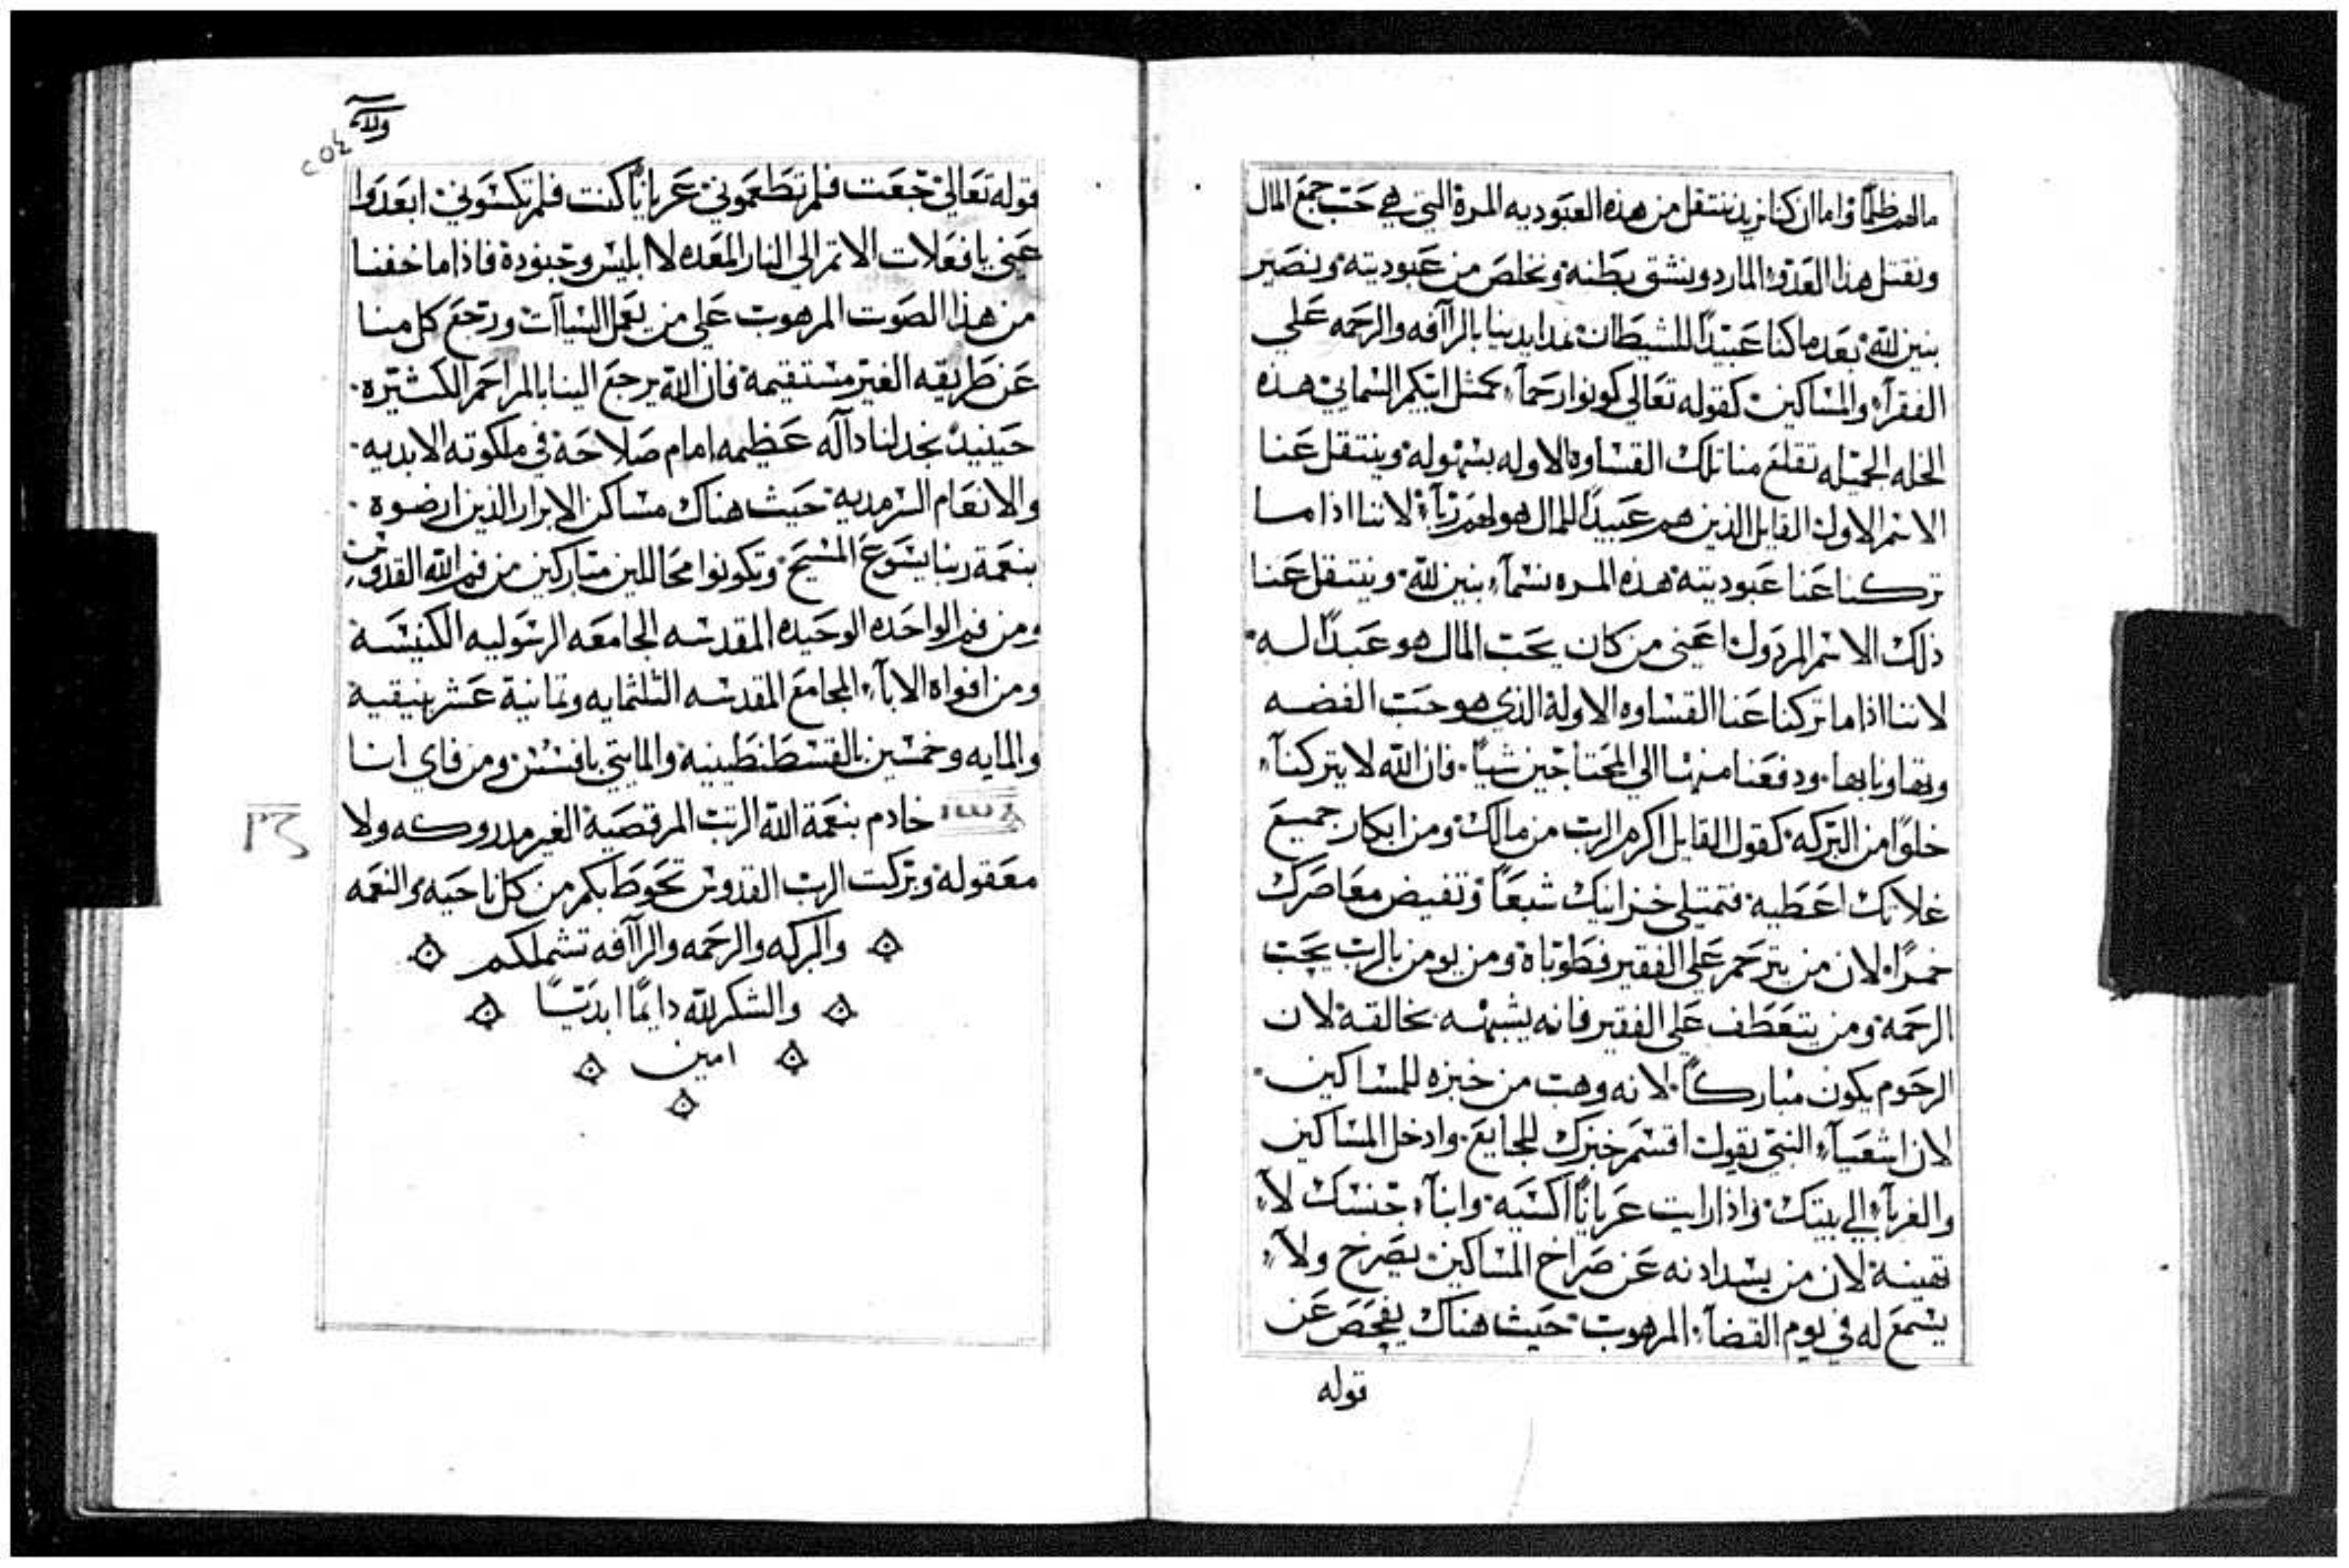 مالهم ظلمًا واما ان كنا نريد ننتقل من هذه العبوديه المرة التي هي حب جمع المال
ونقتل هذا العدو المارد ونشق بطنه ونخلص من عبوديته ونصير
بنين لله بعد ما كنا عبيدًا للشيطان نمد ايدينا بالرآافه والرحمه علي
الفقرآء والمساكين كقوله تعالي كونوا رحمآء كمثل ابيكم السماني هذه
الخله الجميله تقلع منا تلك القساوه الاوله بسهوله وينتقل عنا
الاسم الاول القايل الذين هم عبيدًا للمال هو لهم ربآ لاننا اذا ما
تركنا عنا عبوديته هذه المره نسمآء بنين لله وينتقل عنا
ذلك الاسم المردول اعني من كان يحب المال هو عبدًا له
لاننا اذا ما تركنا عنا القساوه الاولة الذي هو حب الفضه
وتهاونا بها ودفعنا منها الي المحتاجين شيًا فان الله لا يتركنآء
خلوًا من البركه كقول القايل اكرم الرب من مالك ومن ابكار جميع
غلاتك اعطيه فتمتلي خزاينك شبعًا وتفيض معاصرك
خمرًا لان من يترحم علي الفقير فطوباة ومن يومن بالرب يحب
الرحمة ومن يتعطف علي الفقير فانه يشبهه بخالقة لان
الرحوم يكون مباركًا لانه وهب من خبزه للمساكين
لان اشعيآء النبي يقول اقسم خبزك للجايع وادخل المساكين
والغربآء الي بيتك واذا رايت عريانًا اكسيه وابنآء جنسك لآء
تهينة لان من يسد ادنه عن صراخ المساكين يصرخ ولآء
يسمع له في يوم القضآء المرهوب حيث هناك يفحص عن
قوله
ولآء
٢٥٤
قوله تعالي جعت فلم تطعموني عريانًا كنت فلم تكسوني ابعدوا
عني يا فعلات الاتم الي النار المعده لاابليس وجنودة فاذا ما خفنا
من هذا الصوت المرهوب علي من يعمل السياآت ورجع كل منا
عن طريقه الغير مستقيمة فان الله يرجع الينا بالمراحم الكثيره
حينيد نجد لنا دآله عظيمه امام صلاحة في ملكوته الابديه
والانعام السرمديه حيث هناك مساكن الابرار الذين ارضوة
بنعمة ربنا يسوع المسيح وتكونوا محاللين مباركين من فم الله القدوس
ومن فم الواحده الوحيده المقدسه الجامعه الرسوليه الكنيسة
ومن افواه الابآء المجامع المقدسه الثلثمايه وتمانية عشر بنيقية
والمايه وخمسين بالقسطنطينية والمايتي بافسس ومن فاي انا
خادم بنعمة الله الرتب المرقصية الغير مدروكه ولا
معقولة وبركت الرب القدوس تحوط بكم من كل ناحيه والنعمه
والبركه والرحمه والرآافه تشملكم
والشكر لله دايمًا ابديًا
امين